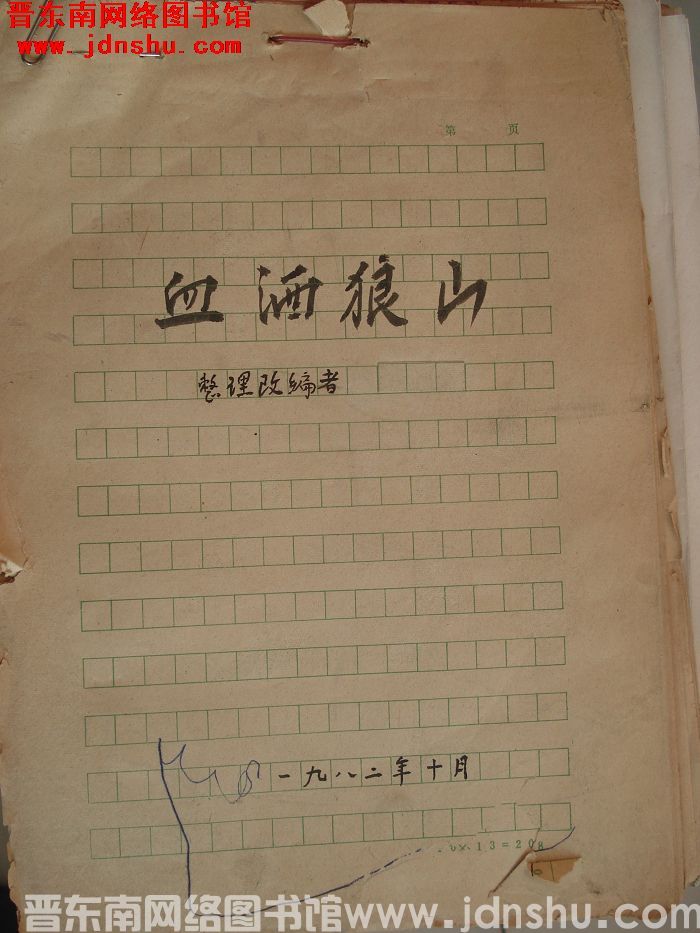 晋东南网络图书馆
www.jdnshu.com
第 页
血洒狼山
整理改编者
一九八二年十月
13=208
晋东南网络图书馆www.jdnshu.com